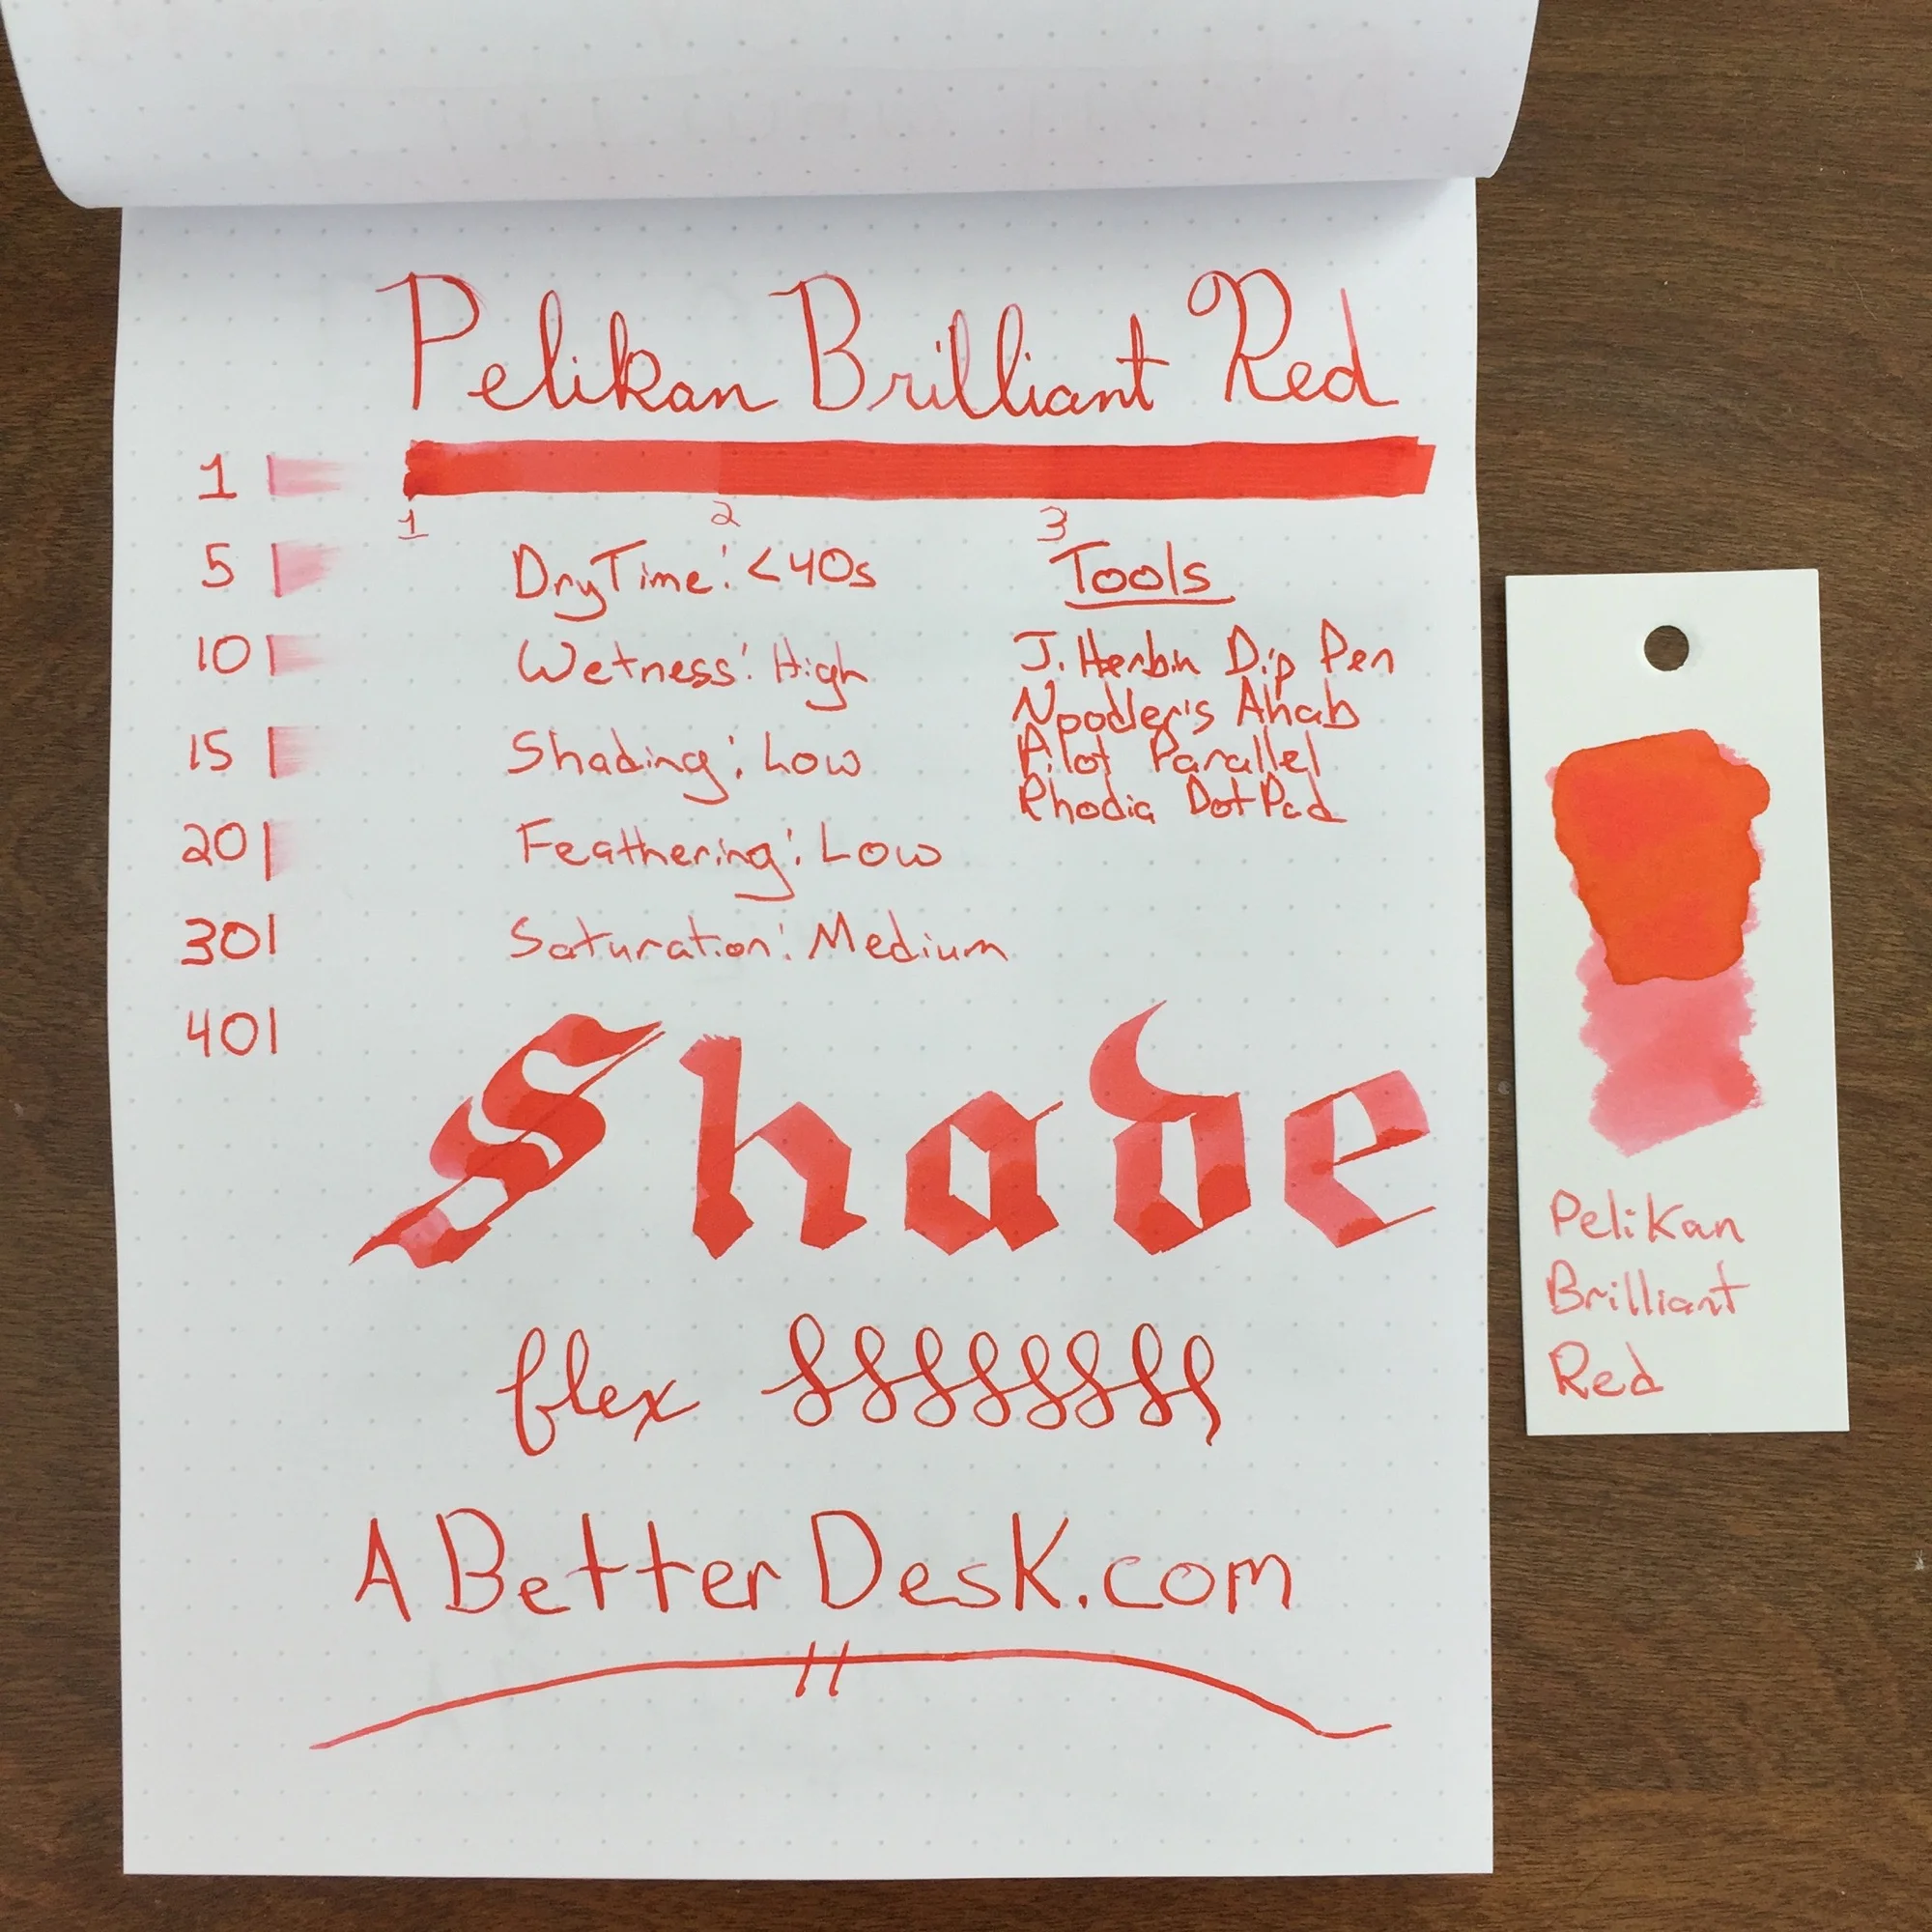 Pelikan Brilliant Red
1
1 2 3
5
Dry Time: <40s
Tools
10
Wetness: High
J. Herbin Dip Pen
Noodler's Ahab
15
Shading: Low
Pilot Parallel
Rhodia DotPad
20
Feathering: Low
30
Saturation: Medium
40
Shade
flex
A Better Desk.com
Pelikan
Brilliant
Red